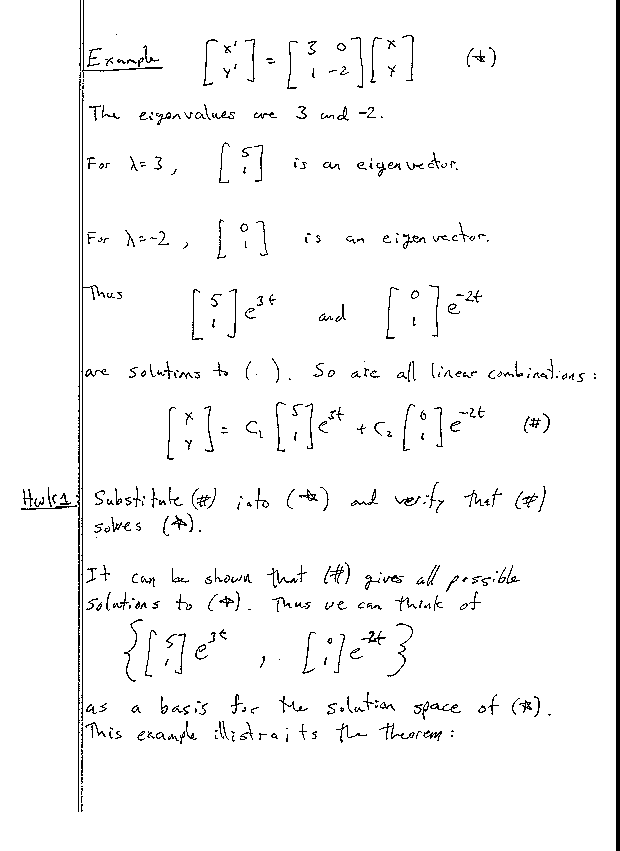 Example [x' y'] = [3 0 1 -2][x y] (*)
The eigenvalues are 3 and -2.
For λ=3, [5 1] is an eigenvector.
For λ=-2, [0 1] is an eigenvector.
Thus
[5 1]e^3t and [0 1]e^-2t
are solutions to (·). So are all linear combinations:
[x y] = C₁[5 1]e^3t + C₂[0 1]e^-2t (#)
Hwk1: Substitute (#) into (*) and verify that (#)
solves (*).
It can be shown that (#) gives all possible
solutions to (*). Thus we can think of
{[5 1]e^3t, [0 1]e^-2t}
as a basis for the solution space of (*).
This example illistraits the theorem: